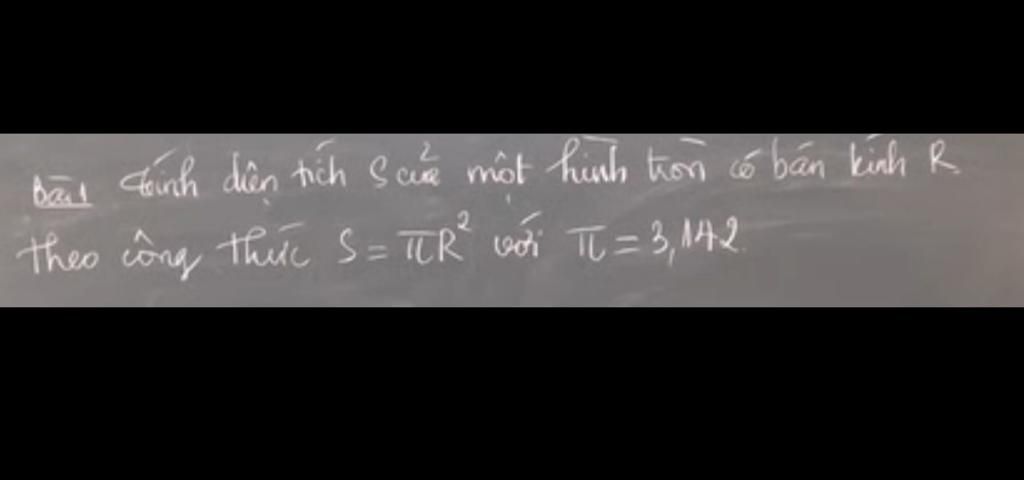 Bài 1 Tính diện tích S của một hình tròn có bán kính R
theo công thức S = πR² với π = 3,142.